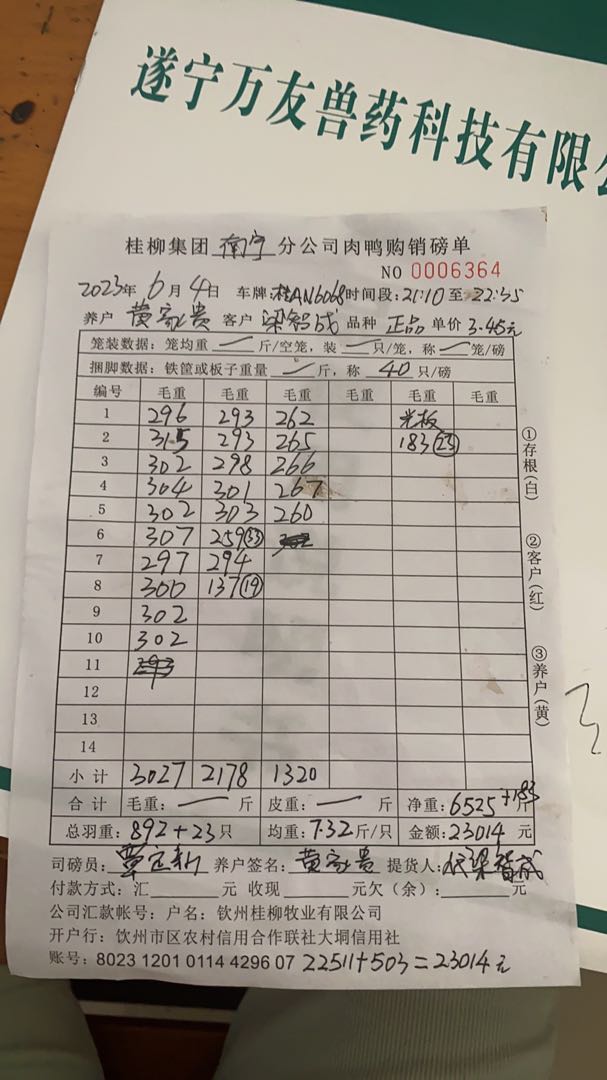 遂宁万友兽药科技有限
桂柳集团 南宁 分公司肉鸭购销磅单
NO 0006364
2023年 6月 4日 车牌:桂AN6068 时间段:21:10 至 22:35
养户 黄家贵 客户 梁智成 品种 正品 单价 3.45元
笼装数据:笼均重 — 斤/空笼,装 — 只/笼,称 — 笼/磅
捆脚数据:铁筐或板子重量 — 斤,称 40 只/磅
编号 毛重 毛重 毛重 毛重 毛重 毛重
1 296 293 262 光板
2 315 293 265 183 (23)
3 302 298 266
4 304 301 267
5 302 303 260
6 307 259 (33)
7 297 294
8 300 137 (19)
9 302
10 302
11
12
13
14
小计 3027 2178 1320
合计 毛重: — 斤 皮重: — 斤 净重:6525+183 斤
总羽重:892+23只 均重:7.32斤/只 金额:23014 元
司磅员: 养户签名:黄家贵 提货人: 梁智成
付款方式:汇 元 收现 元欠(余): 元
公司汇款帐号:户名:钦州桂柳牧业有限公司
开户行:饮州市区农村信用合作联社大垌信用社
账号:8023 1201 0114 4296 07 22511+503=23014元
①存根(白)
②客户(红)
③养户(黄)